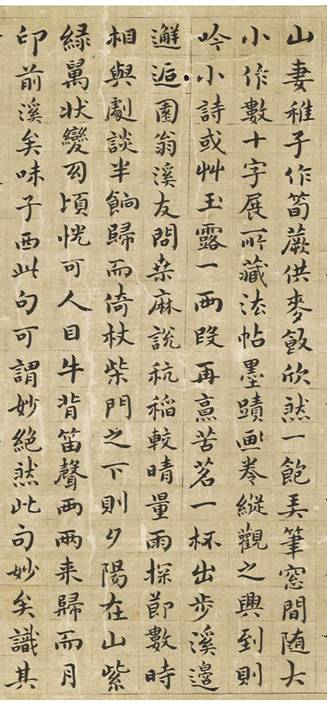 山妻稚子作筍蕨供麥飯欣然一飽弄筆窓間随大
小作數十字展所藏法帖墨蹟畫卷縱觀之興到則
吟小詩或艸玉露一兩段再烹苦茗一杯出步溪邊
邂逅園翁溪友問桒麻說秔稻較晴量雨探節數時
相與劇談半餉歸而倚杖柴門之下則夕陽在山紫
緑萬狀變幻頃恍可人目牛背笛聲兩兩来歸而月
印前溪矣味子西此句可謂妙絶然此句妙矣識其